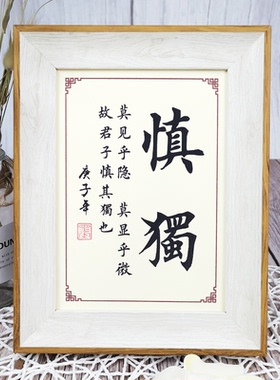 慎獨
莫见乎隐 莫显乎微
故君子慎其獨也
庚子年